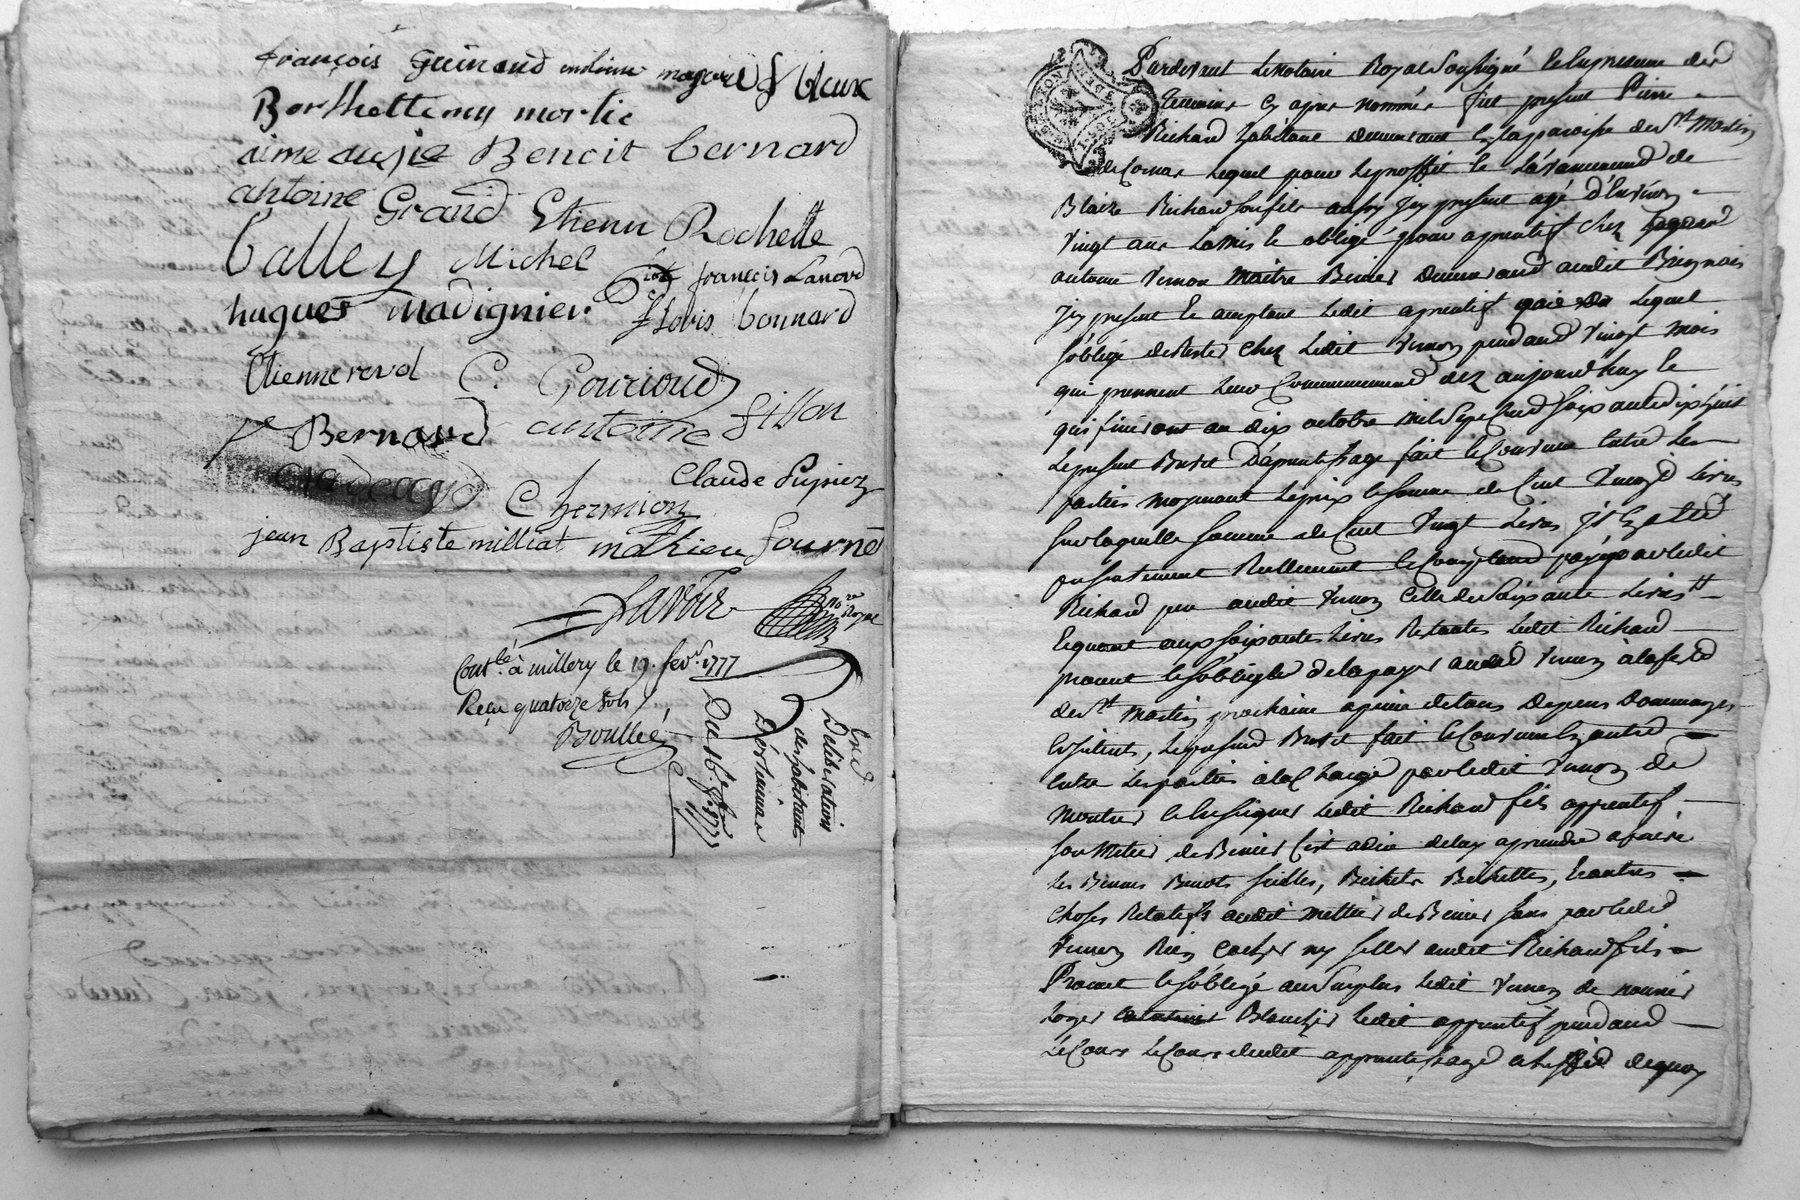 françois guinand antoine mazard f vieux
Barthellemy mortie
aime dupie Benoit bernard
antoine Grand Etienn Rochette
Valley Michel françois Lanord
hugues madignier floris bonnard
Etienne revol C. Gourioud
Bernard antoine fillon
Claude Pupiez
C hermion
jean Baptiste milliat mathieu fourne
Lavoir No.re Royal
Cont.lé à millery le 19. fev.r 1777
Reçu quatorze sols
Boullée
Du 16. f.r 1777
Deliberation
des habitants
D'orlienas
Pardevant Le Notaire Royal Soussigné En presence des
Temoins Cy apres nommés fut present Pierre
Richard habitant demeurant En la paroisse de St Martin
de Cornas Lequel pour Le proffit Et L'avancement de
Blaize Richard son fils aussy Icy present agé d'Environ
vingt ans La mis Et obligé pour aprentif chez
antoine Vinon Maitre Benier demeurand audit Brignais
Icy present Et acceptant Ledit aprentif Lequel
s'oblige de rester chez Ledit Vinon pendand vingt mois
qui prennent Leur Commencement dez aujourd'huy Et
qui finiront au dix octobre mil Sept Cend Soixante dix huit
Le present Brevet D'aprentissage fait Et Convenu Entre Les
parties moyenant Le prix Et somme de Cent Vingt Livres
sur laquelle somme de Cent Vingt Livres Il En a Eté
presentement Reellement Et Comptand payé par Ledit
Richard pere audit Vinon Celle de Soixante Livres
Et quant aux soixantes Livres Restantes Ledit Richard
promet Et s'oblige de la payer audit Vinon a la fete
de St Martin prochaine a peine de tous Depens Dommages
Et Interets, Le present Brevet fait Et Convenu En outre
Entre Les parties a la Charge par Ledit Vinon de
Montrer Et Enseigner Ledit Richard fils apprentif
son Metier de Benier C'est a dire de luy aprendre a faire
Les Bennes Benots seilles, Bichets Bichettes, Et autres
choses Relatifs audit Mettier de Benier sans par Ledit
Vinon Rien cacher ny seller audit Richard fils
Promet Et s'oblige au Surplus Ledit Vinon de nourrir
Loger Blanchir Ledit apprentif pendand
Le Cours Le Cours dudit apprentissage a L'effet de quoy